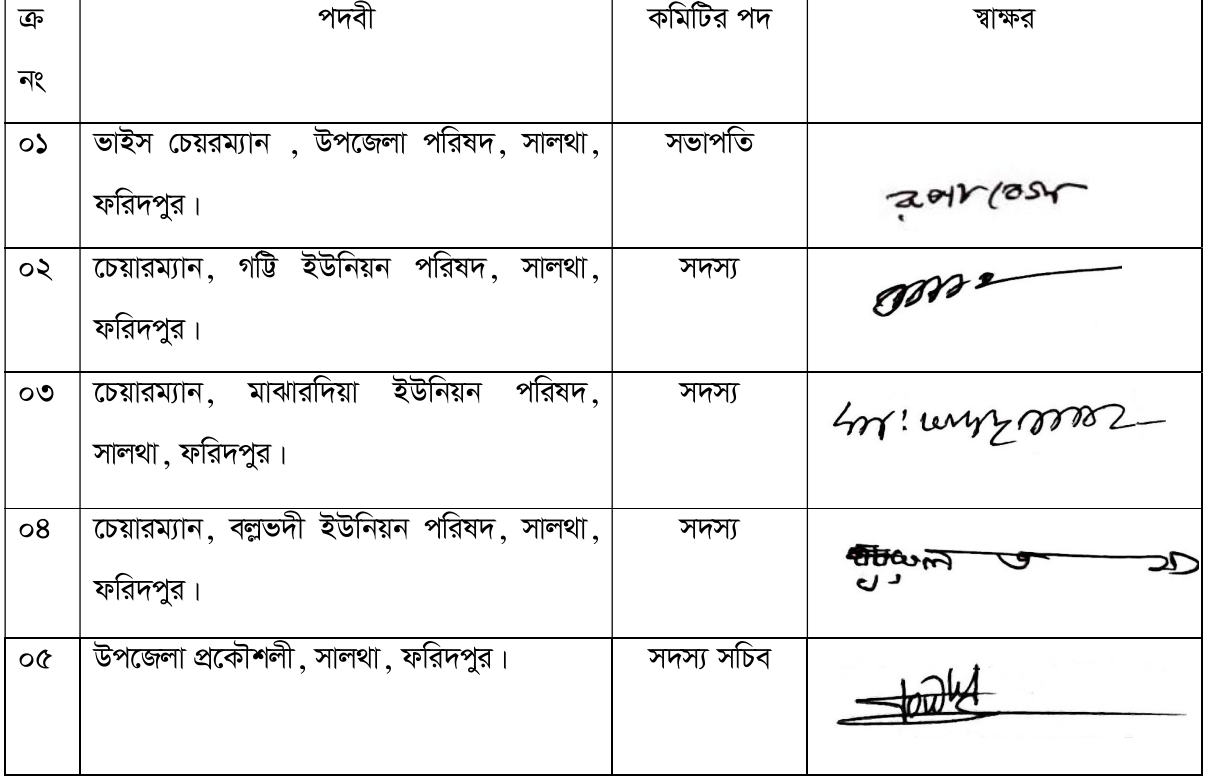 ক্র পদবী কমিটির পদ স্বাক্ষর
নং
০১ ভাইস চেয়রম্যান , উপজেলা পরিষদ, সালথা, সভাপতি
ফরিদপুর।
০২ চেয়ারম্যান, গট্টি ইউনিয়ন পরিষদ, সালথা, সদস্য
ফরিদপুর।
০৩ চেয়ারম্যান, মাঝারদিয়া ইউনিয়ন পরিষদ, সদস্য
সালথা, ফরিদপুর।
০৪ চেয়ারম্যান, বল্লভদী ইউনিয়ন পরিষদ, সালথা, সদস্য
ফরিদপুর।
০৫ উপজেলা প্রকৌশলী, সালথা, ফরিদপুর। সদস্য সচিব